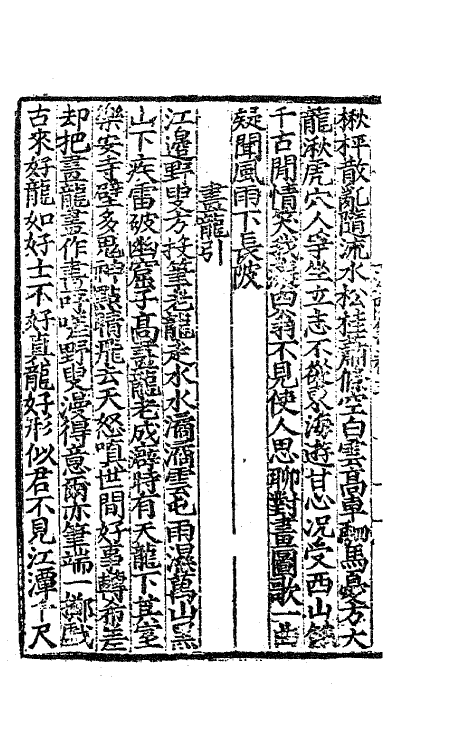 楸枰散亂隨流水松桂蕭條空白雲高車駟馬忽方大
龍湫虎穴人爭坐立志不從東海遊甘心况受西山餓
千古閒情笑我四翁不見使人思聊對畫圖歌一曲
疑聞風雨下長陂
畫龍引
江邊野叟方投筆老龍走水水滴滴雲屯雨濕萬山黑
山下疾雷破幽窟子高畫龍老成癖時有天龍下其室
樂安寺壁多鬼神點睛飛去天怒嗔世間好事轉希差
却把畫龍畫作畫吁嗟野叟漫得意爾亦筆端一鄉戲
古來好龍如好士不好真龍好形似君不見江潭千尺